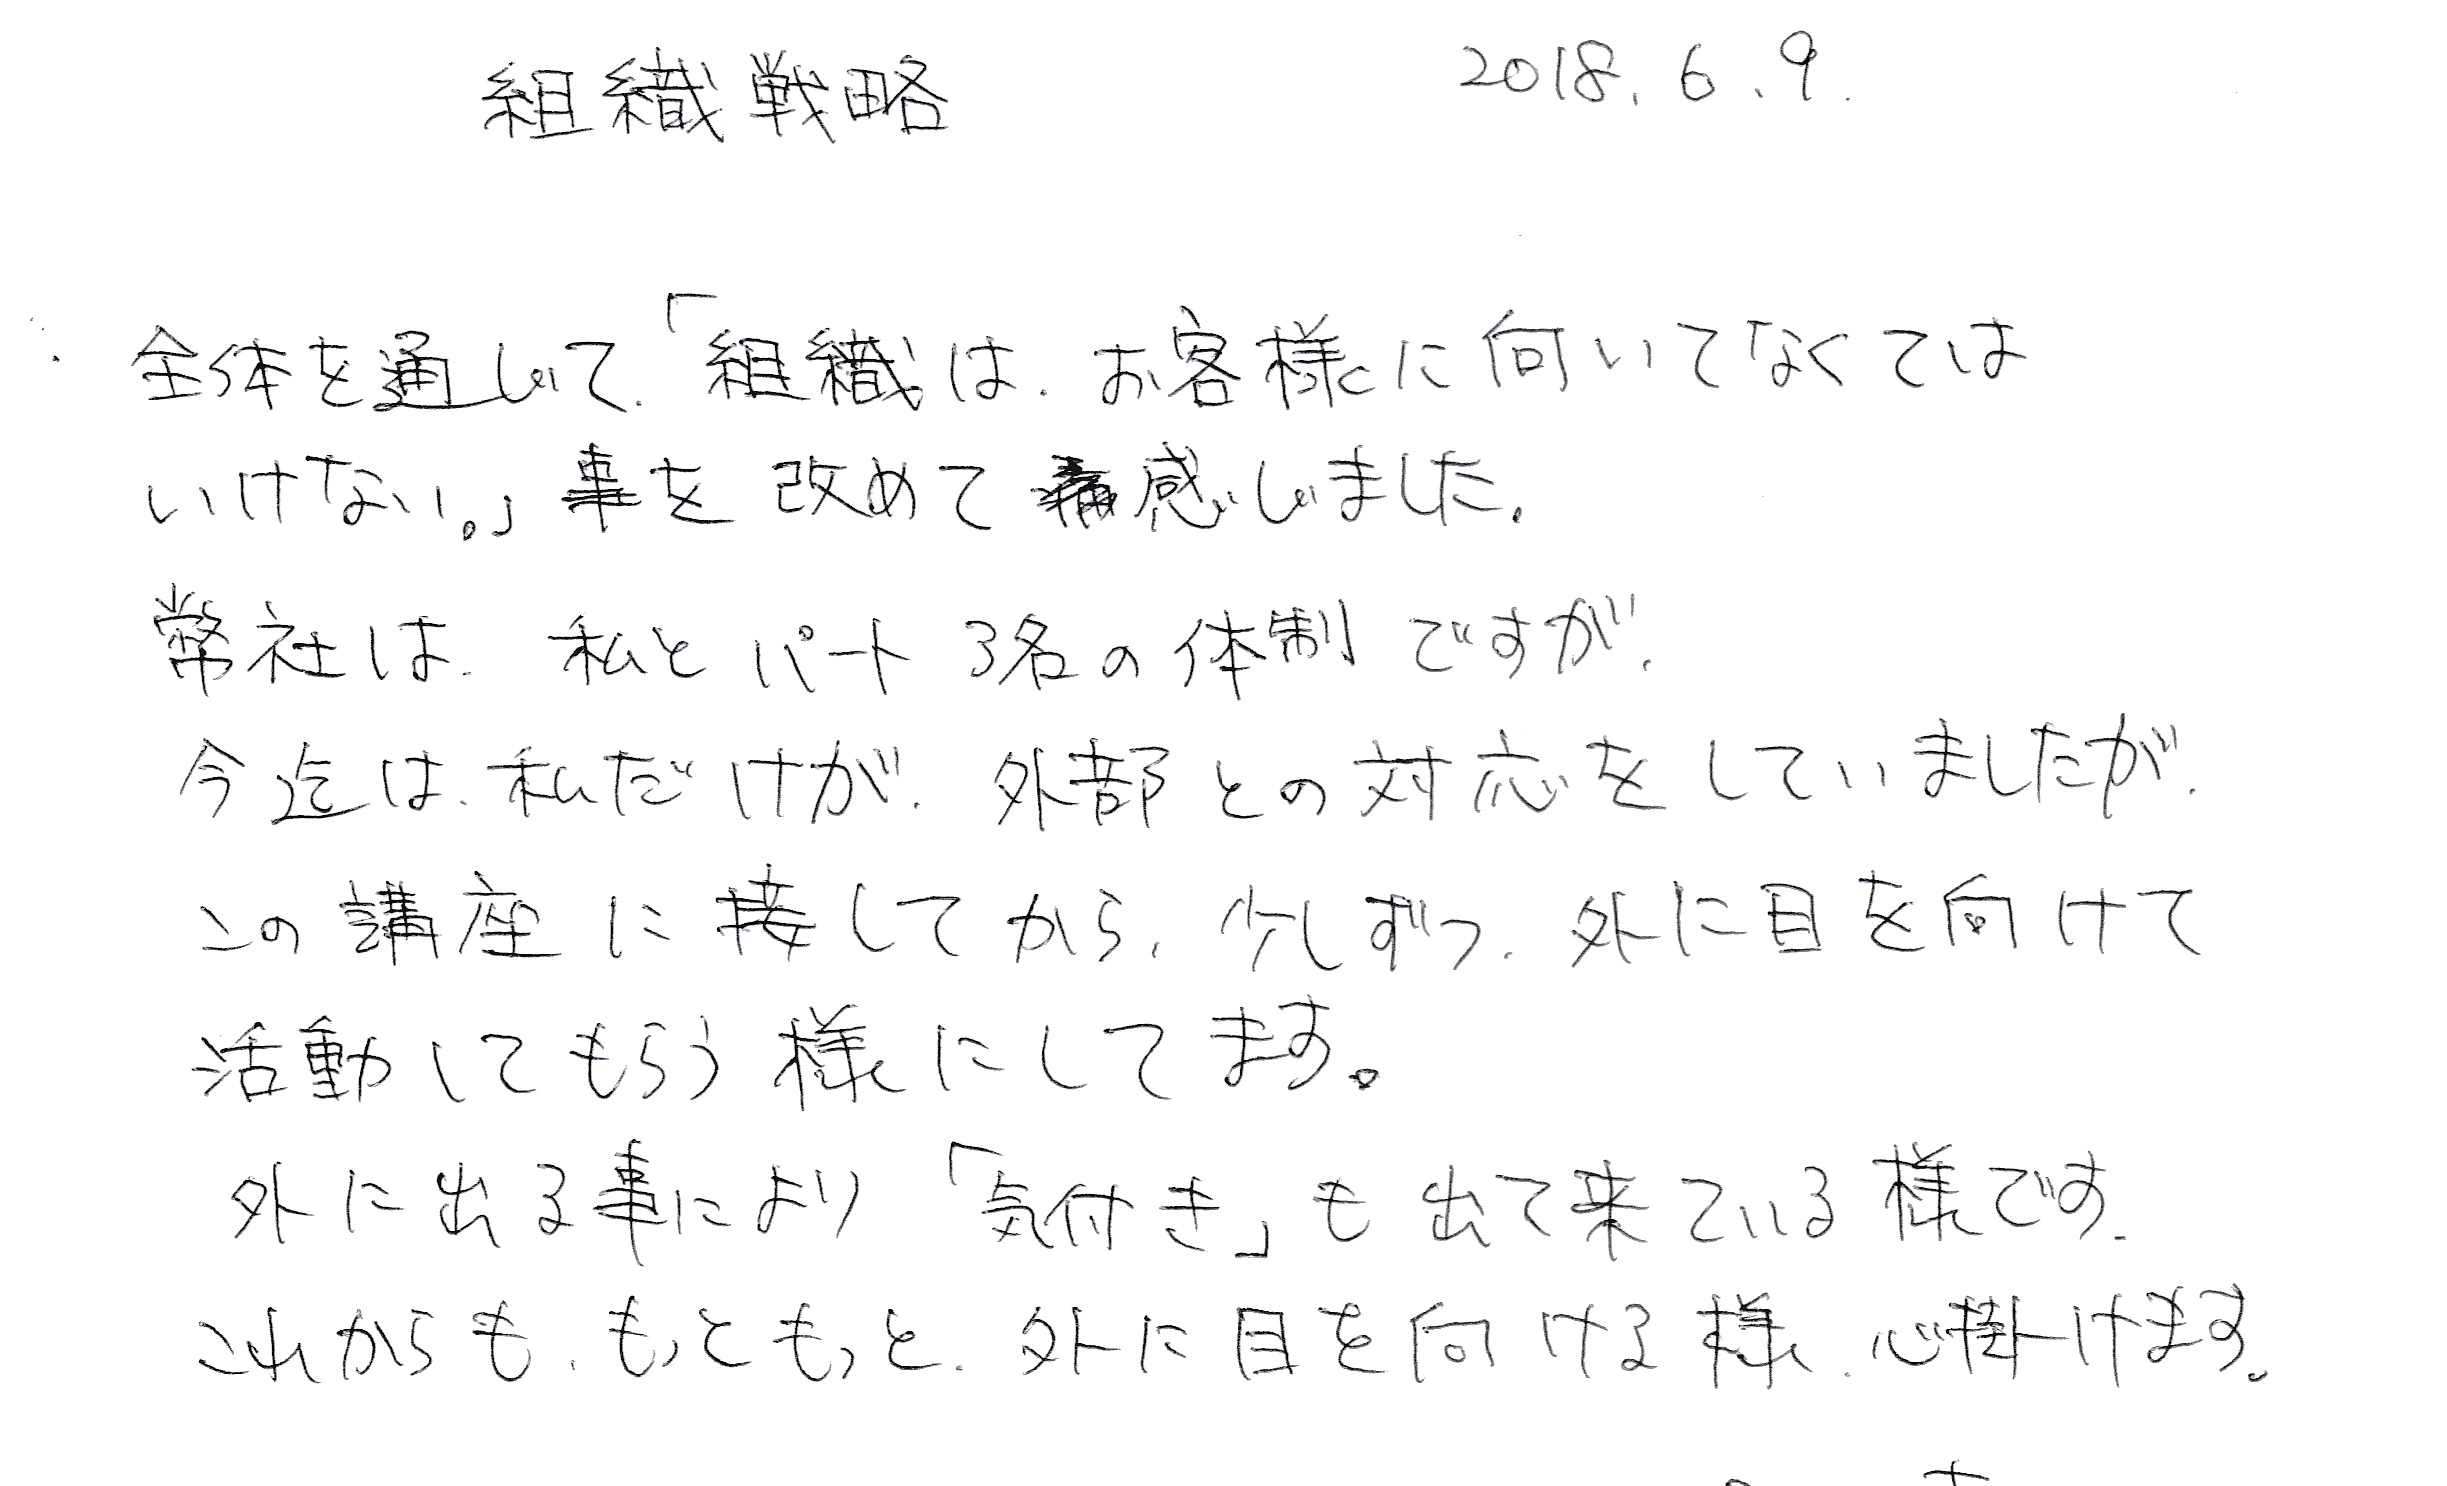 組織戦略 2018.6.9.
全体を通じて、「組織は、お客様に向いてなくては
いけない。」事を改めて感じました。
弊社は、私とパート3名の体制ですが、
今迄は、私だけが、外部との対応をしていましたが、
この講座に接してから、少しずつ、外に目を向けて
活動してもらう様にしてます。
外に出る事により「気付き」も出て来ている様です。
これからも、もっともっと、外に目を向ける様、心掛けます。